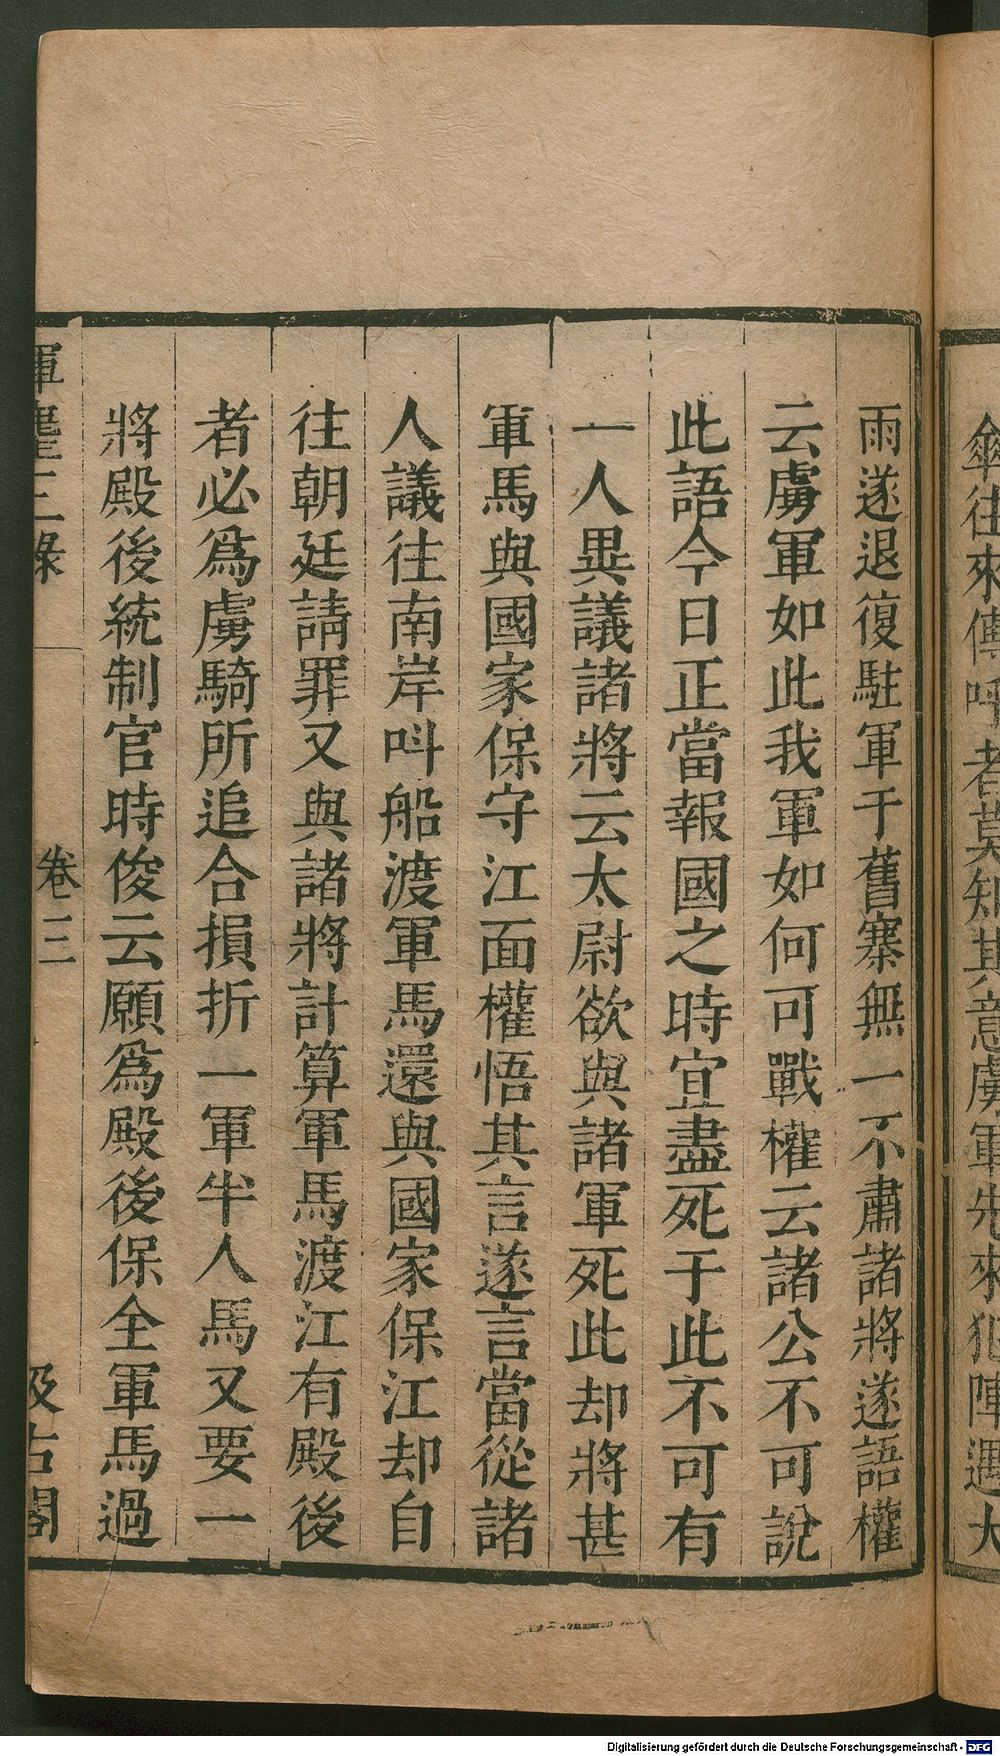 傘往來傳呼者莫知其意虜軍先來犯陣遇大
雨遂退復駐軍于舊寨無一不肅諸將遂語權
云虜軍如此我軍如何可戰權云諸公不可說
此語今日正當報國之時宜盡死于此不可有
一人異議諸將云太尉欲與諸軍死此却將甚
軍馬與國家保守江面權悟其言遂言當從諸
人議往南岸叫船渡軍馬還與國家保江却自
往朝廷請罪又與諸將計算軍馬渡江有殿後
者必爲虜騎所追合損折一軍半人馬又要一
將殿後統制官時俊云願爲殿後保全軍馬過
揮麈三錄 卷三 汲古閣
Digitalisierung gefördert durch die Deutsche Forschungsgemeinschaft - DFG